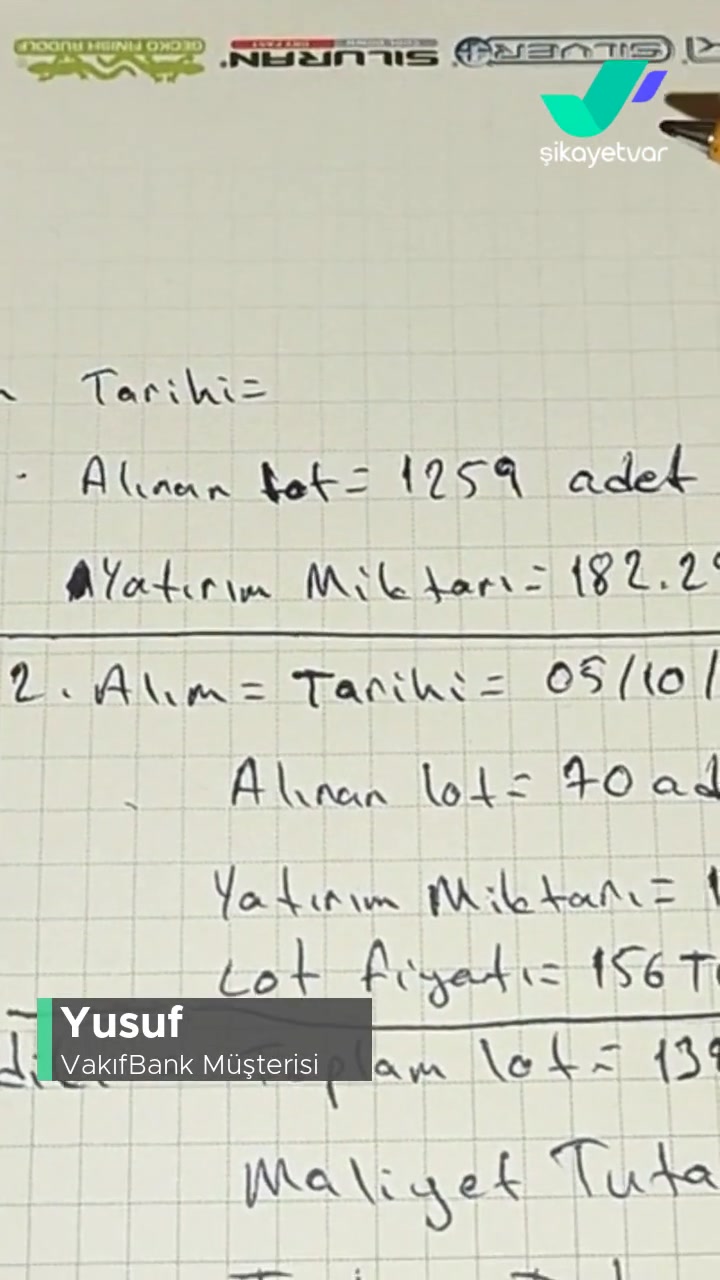 GECKO FINISH RUDOLF SILURAN SILVER
şikayetvar
Tarihi=
Alınan lot= 1259 adet
Yatırım Miktarı= 182.29
2. Alım= Tarihi= 05/10/
Alınan lot= 70 ad
Yatırım Miktarı= 1
Lot fiyatı= 156 T
Yusuf
VakıfBank Müşterisi
Toplam lot= 13
Maliyet Tuta